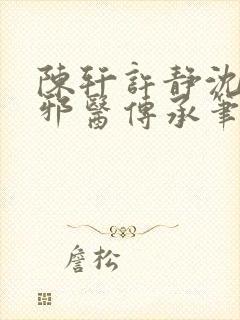 陳軒許靜沈
邪醫傳承筆
詹松